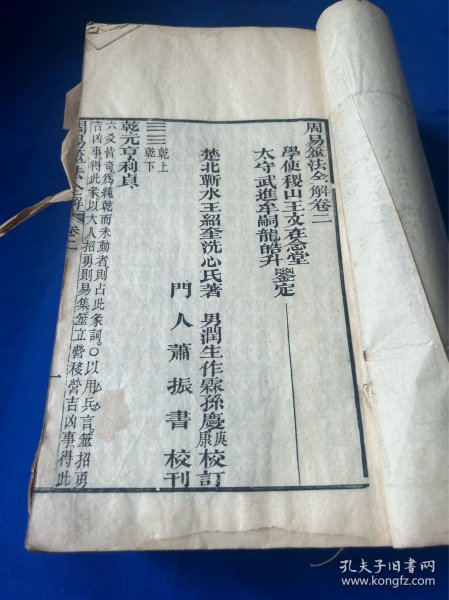 周易筮法全解卷二
學使稷山王文在念堂
太守武進牟嗣龍皓升
鑒定
楚北蘄水王紹奎洗心氏著
男潤生作霖孫慶庚康校訂
門人蕭振書校刊
乾上
乾下
乾元亨利貞
六爻皆奇為純乾而未動者則占此彖詞〇以用兵言筮招勇
吉凶事得此彖以大人招勇則易集筮立營移營吉凶事得此
周易筮法全解
卷二
一
孔夫子旧书网
www.kongfz.com